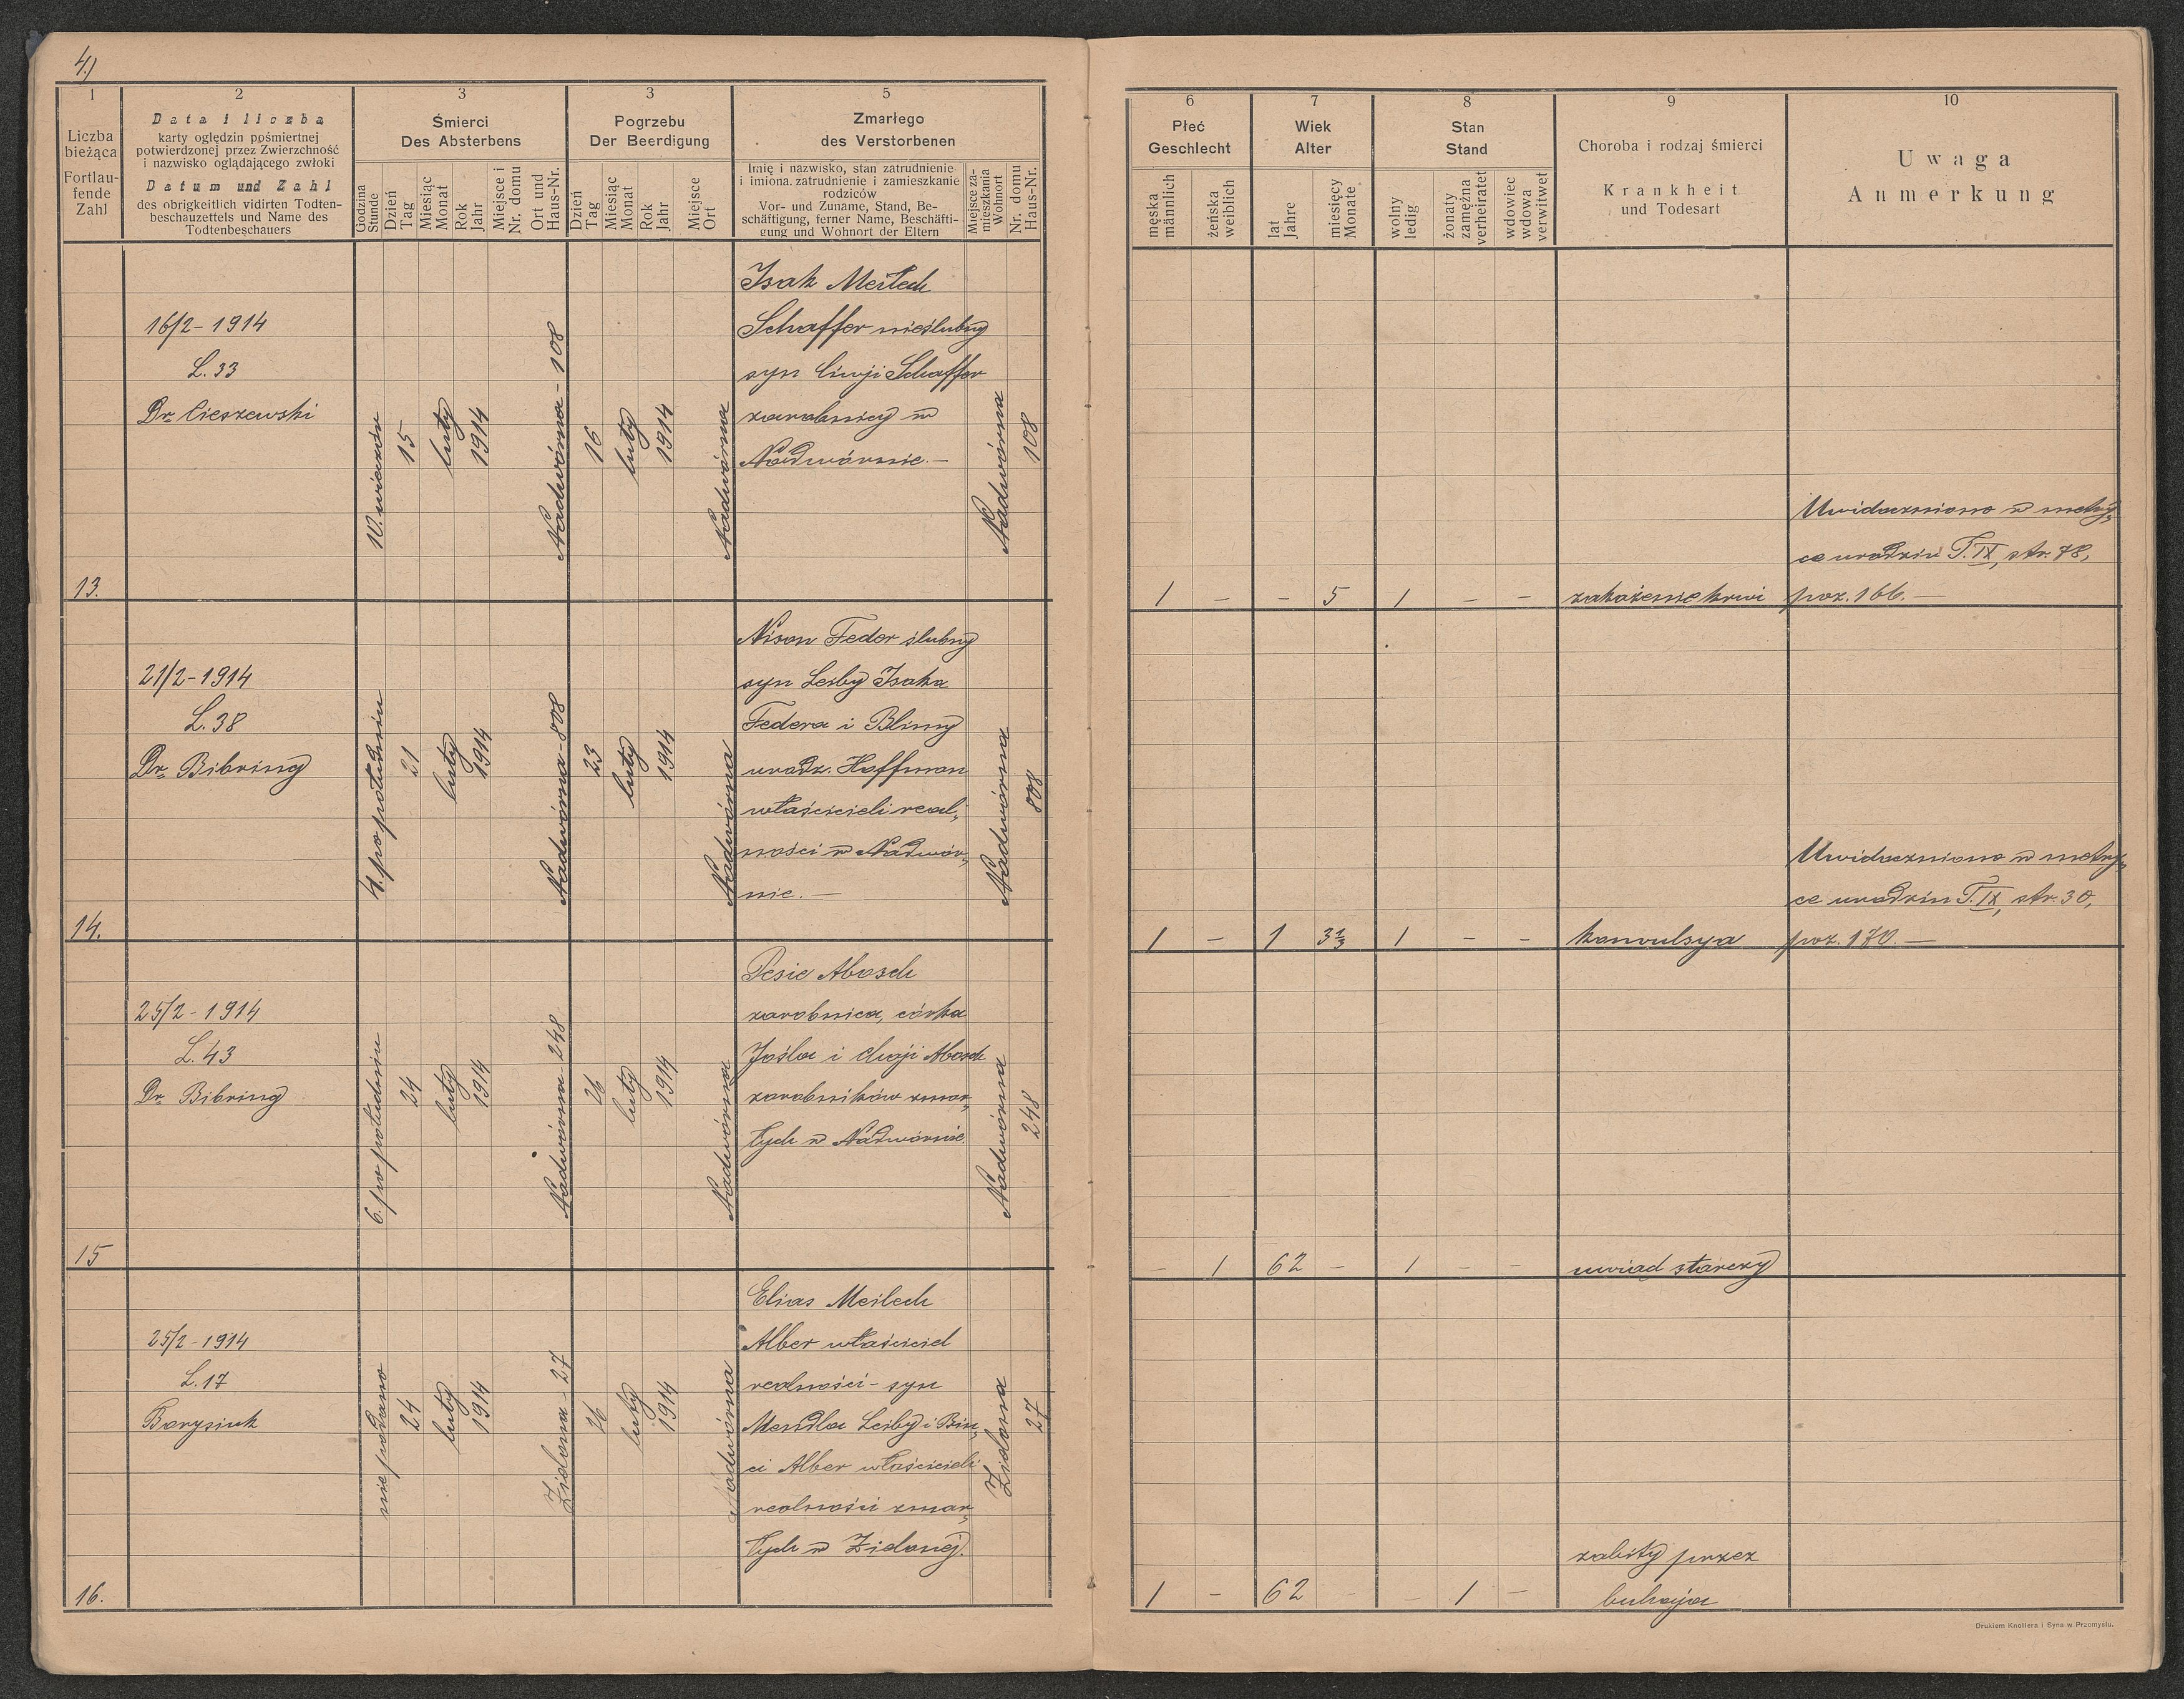 4.)
1
Liczba
bieżąca
Fortlau-
fende
Zahl
2
Data i liczba
karty oględzin pośmiertnej
potwierdzonej przez Zwierzchność
i nazwisko oglądającego zwłoki
Datum und Zahl
des obrigkeitlich vidirten Todten-
beschauzettels und Name des
Todtenbeschauers
3
Śmierci
Des Absterbens
Godzina
Stunde
Dzień
Tag
Miesiąc
Monat
Rok
Jahr
Miejsce i
Nr. domu
Ort und
Haus-Nr.
3
Pogrzebu
Der Beerdigung
Dzień
Tag
Miesiąc
Monat
Rok
Jahr
Miejsce
Ort
5
Zmarłego
des Verstorbenen
Imię i nazwisko, stan zatrudnienie
i imiona. zatrudnienie i zamieszkanie
rodziców
Vor- und Zuname, Stand, Be-
schäftigung, ferner Name, Beschäfti-
gung und Wohnort der Eltern
Miejsce za-
mieszkania
Wohnort
Nr. domu
Haus-Nr.
6
Płeć
Geschlecht
męska
männlich
żeńska
weiblich
7
Wiek
Alter
lat
Jahre
miesięcy
Monate
8
Stan
Stand
wolny
ledig
żonaty
zamężna
verheiratet
wdowiec
wdowa
verwitwet
9
Choroba i rodzaj śmierci
Krankheit
und Todesart
10
Uwaga
Anmerkung
13.
16/2 - 1914
L. 33
Dr. Cieszewski
10. wieczór
15
luty
1914
Nadwórna - 108
16
luty
1914
Nadwórna
Isak Meilech
Schaffer nieślubny
syn Ciwji Schaffer
zarobnicy w
Nadwórnie. -
Nadwórna
108
1 - - 5 1 - -
zakażenie krwi
Uwidoczniono w metry-
ce urodzin T. IX, str. 78,
poz. 166. -
14.
21/2 - 1914
L. 38
Dr. Bibring
4. po południu
21
luty
1914
Nadwórna - 808
23
luty
1914
Nadwórna
Nison Feder ślubny
syn Leiby Isaka
Federa i Blimy
urodz. Hoffman
właścicieli real-
ności w Nadwór-
nie. -
Nadwórna
808
1 - 1 3⅓ 1 - -
konwulsya
Uwidoczniono w metry-
ce urodzin T. IX, str. 30,
poz. 170. -
15
25/2 - 1914
L. 43
Dr. Bibring
6. po południu
24
luty
1914
Nadwórna - 248
26
luty
1914
Nadwórna
Pesie Abosch
zarobnica, córka
Jośla i Chaji Abosch
zarobników zmar-
łych w Nadwórnie.
Nadwórna
248
- 1 62 - 1 - -
uwiąd starczy
16.
25/2 - 1914
L. 17
Borysiuk
nie podano
24
luty
1914
Zielona - 27
26
luty
1914
Nadwórna
Elias Meilech
Alber właściciel
realności - syn
Mendla Leiby i Bin-
ci Alber właścicieli
realności zmar-
łych w Zielonej.
Zielona
27
1 - 62 - - 1 -
zabity przez
buhaja
Drukiem Knollera i Syna w Przemyślu.